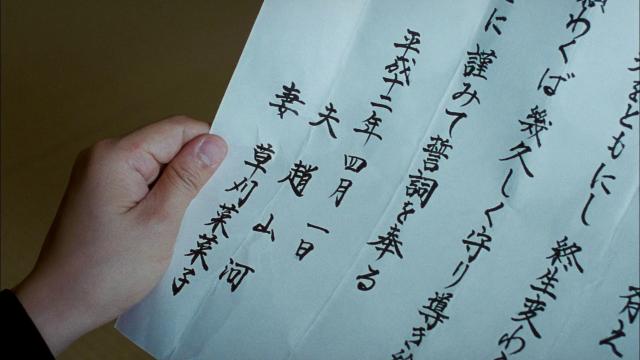 夫ともにし 終生変わ
願わくば 幾久しく守り導き
に 謹みて誓詞を奉る
平成十二年 四月 一日
夫 趙 山河
妻 草刈 菜菜子